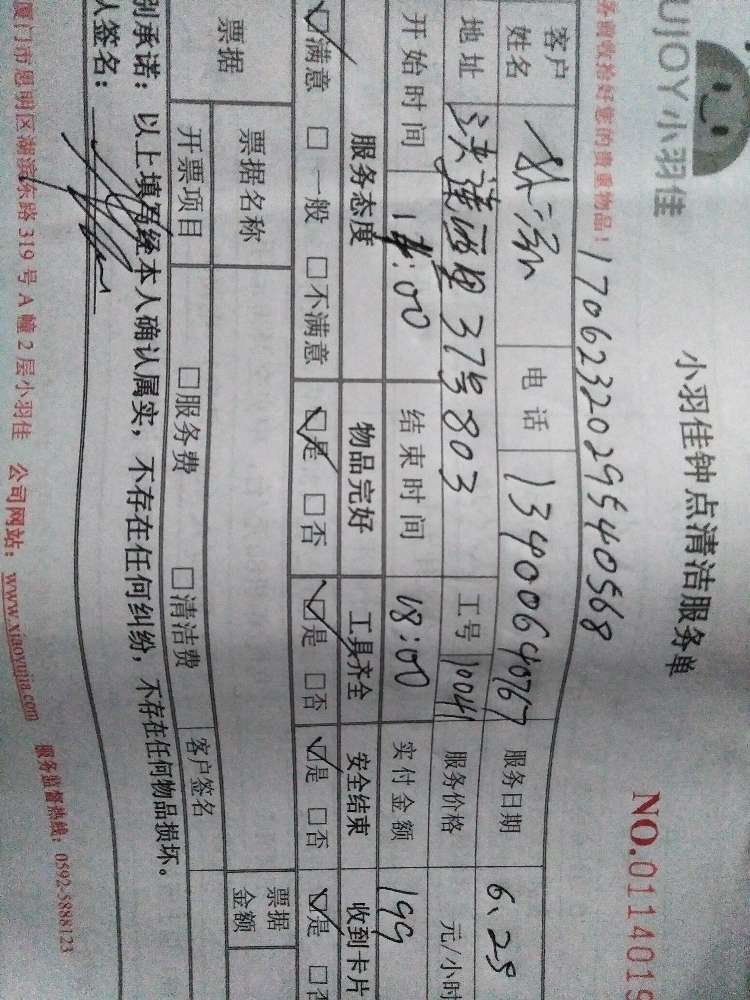 UJOY小羽佳
小羽佳钟点清洁服务单
NO.0114019
务前收拾好您的贵重物品!
1706232029540568
客户姓名 电话 13400640767 服务日期 6.25
地址 洪莲西里37号803 工号 10041 服务价格 元/小时
开始时间 14:00 结束时间 18:00 实付金额 199
服务态度 物品完好 工具齐全 安全结束 收到卡片
☑满意 □一般 □不满意 ☑是 □否 ☑是 □否 ☑是 □否 ☑是 □否
票据 票据名称 票据金额
开票项目 □服务费 □清洁费 客户签名
别承诺:以上填写经本人确认属实,不存在任何纠纷,不存在任何物品损坏。
人签名:
厦门市思明区湖滨东路319号A幢2层小羽佳 公司网站:www.xiaoyujia.com 服务监督热线:0592-5888123